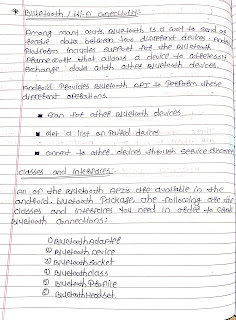 * Bluetooth / Wi-Fi connectivity:
Among many ways Bluetooth is a way to send or
receive data between two different devices. Android
platform includes support for the Bluetooth
framework that allows a device to wirelessly
exchange data with other Bluetooth devices.
Android provides Bluetooth API to perform these
different operations.
■ scan for other Bluetooth devices
■ Get a list of paired devices
■ connect to other devices through service discovery
classes and Interfaces:
All of the Bluetooth APIs are available in the
android.bluetooth package. The following are the
classes and interfaces you need in order to create
Bluetooth connections:
1) BluetoothAdapter
2) Bluetooth Device
3) BluetoothSocket
4) Bluetoothclass
5) Bluetooth Profile
6) Bluetooth Headset.